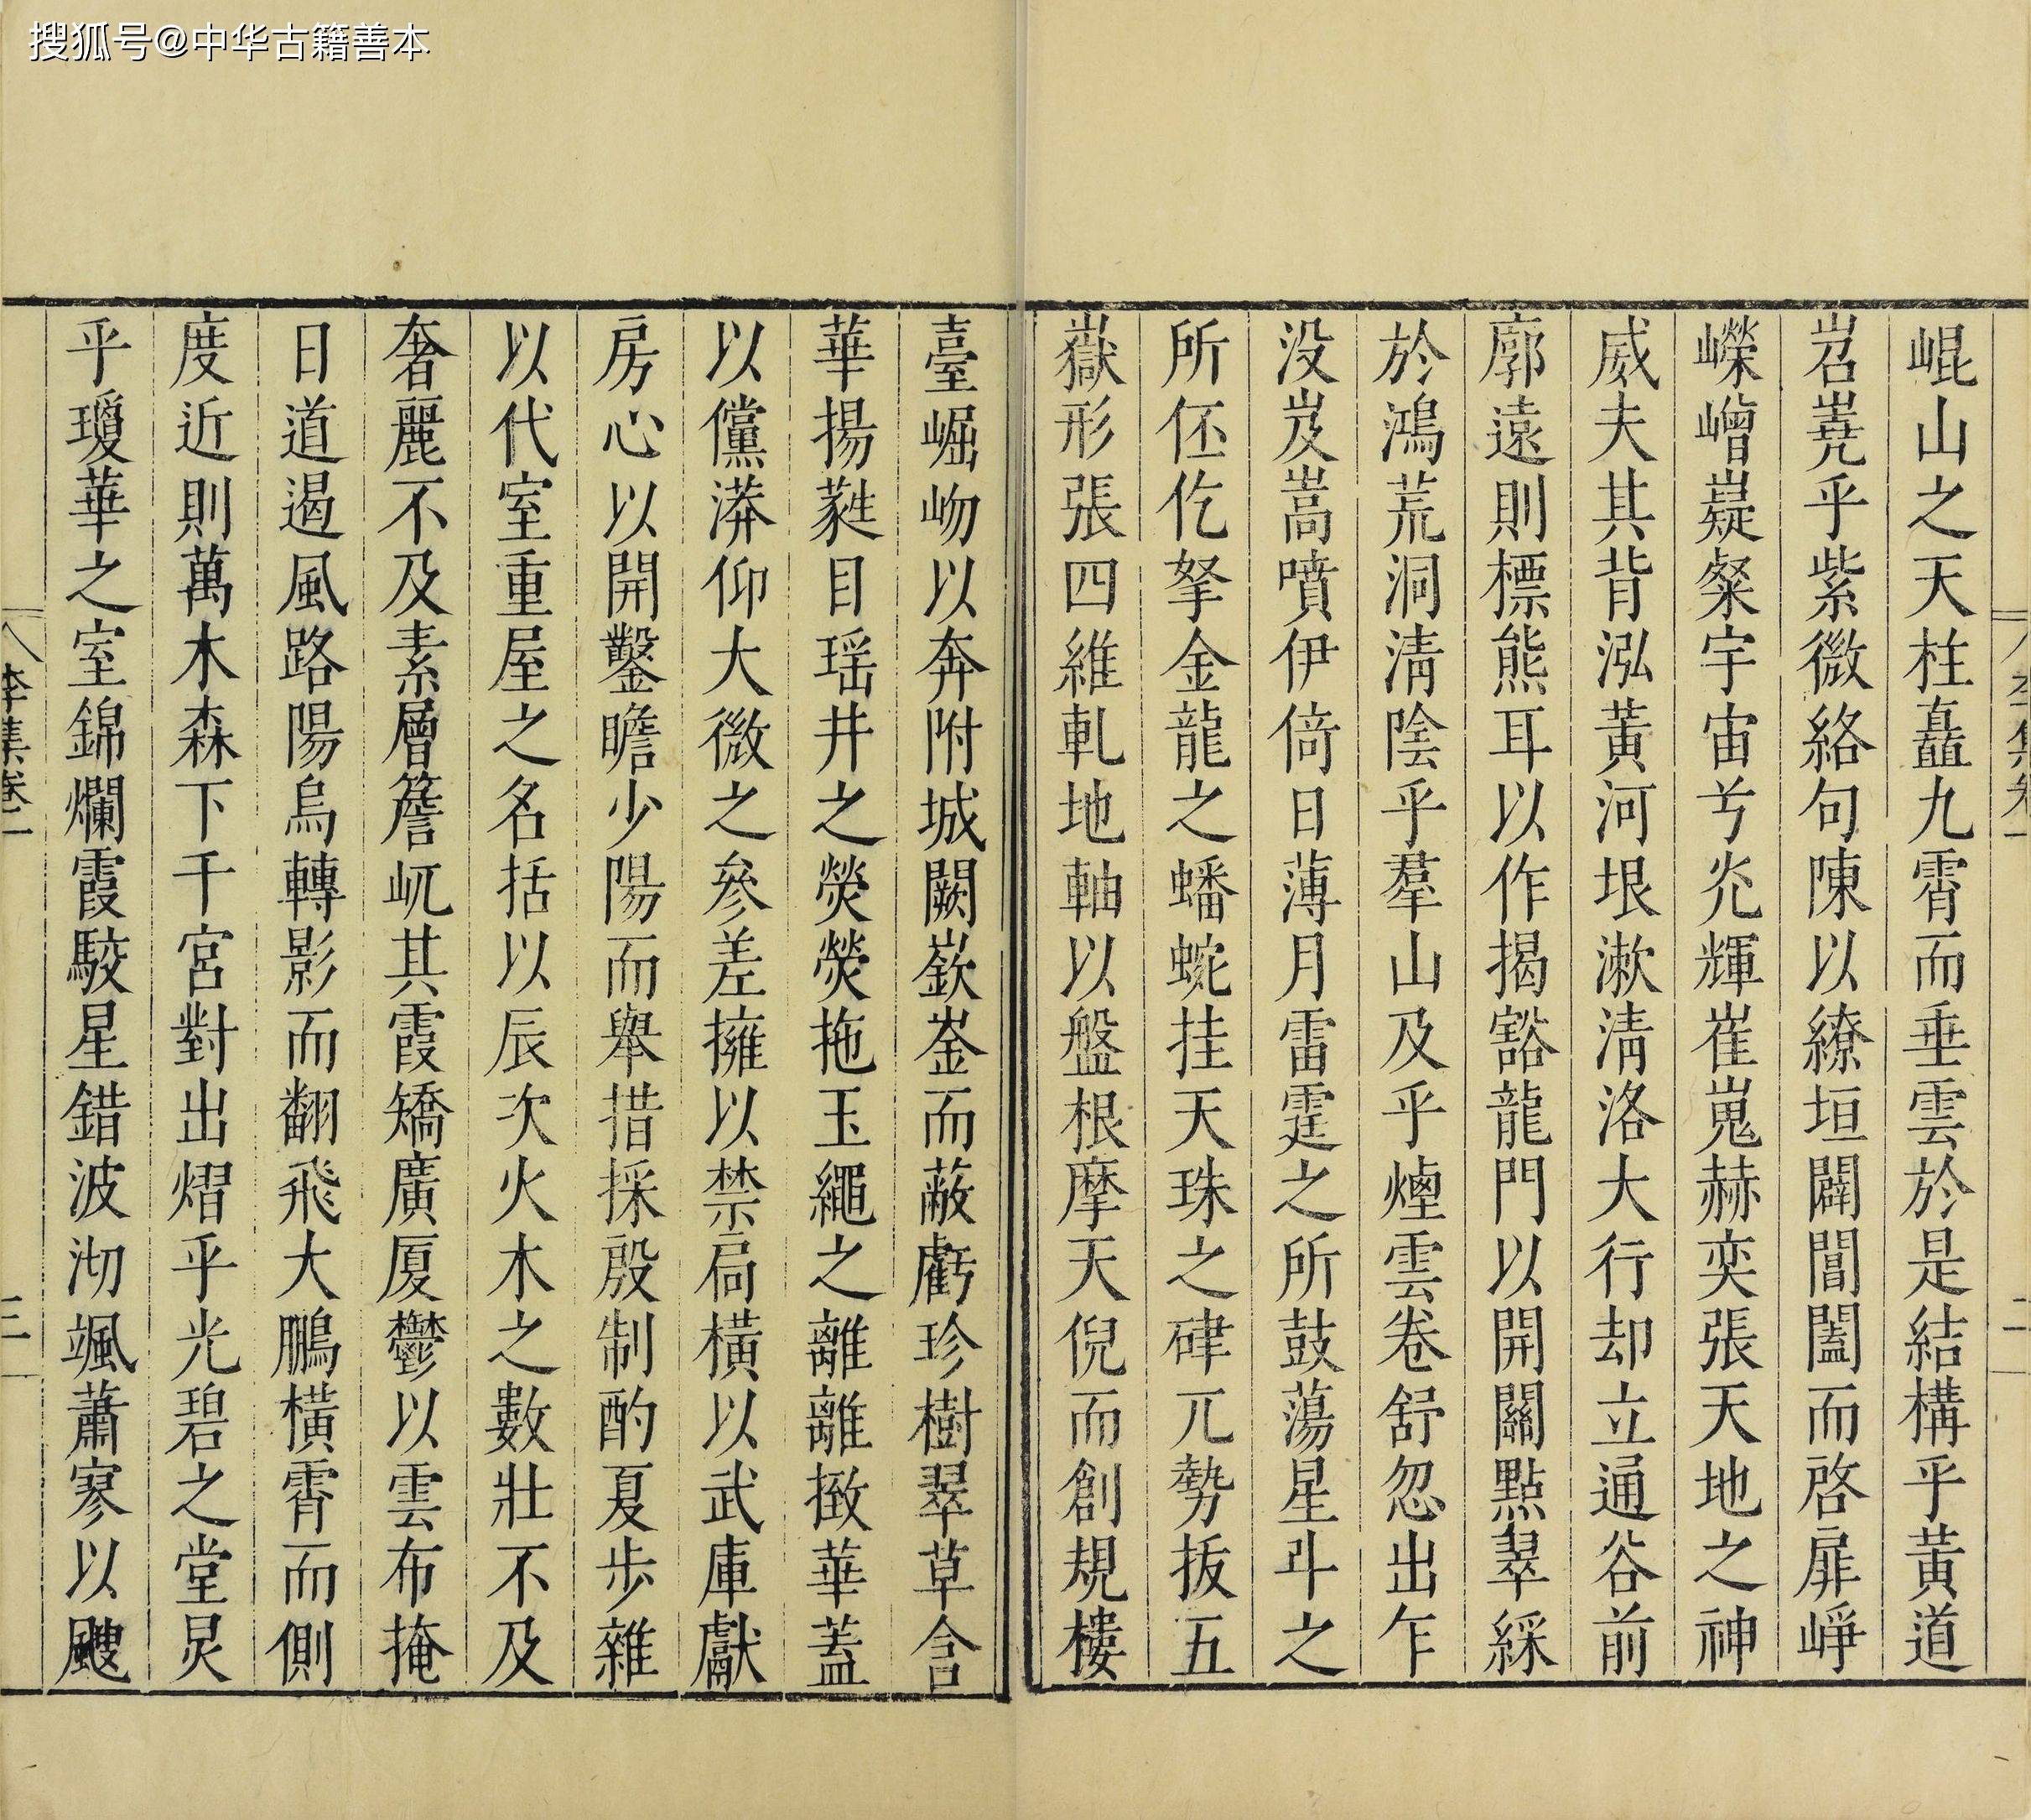 搜狐号@中华古籍善本
崐山之天柱矗九霄而垂雲於是結構乎黃道
岧嶤乎紫微絡句陳以繚垣闢閶闔而啓扉崢
嶸嶒嶷粲宇宙兮光輝崔嵬赫奕張天地之神
威夫其背泓黃河垠漱清洛大行却立通谷前
廓遠則標熊耳以作揭豁龍門以開關點翠綵
於鴻荒洞清陰乎羣山及乎煙雲卷舒忽出乍
没岌嵩噴伊倚日薄月雷霆之所鼓蕩星斗之
所伾仡拏金龍之蟠蜿挂天珠之硉兀勢拔五
嶽形張四維軋地軸以盤根摩天倪而創規樓
臺崛岉以奔附城闕嶔崟而蔽虧珍樹翠草含
華揚蕤目瑶井之熒熒拖玉繩之離離㨖華蓋
以儻漭仰大微之參差擁以禁扃橫以武庫獻
房心以開鑿瞻少陽而舉措採殷制酌夏步雜
以代室重屋之名括以辰次火木之數壯不及
奢麗不及素層簷屼其霞矯廣厦鬱以雲布掩
日道遏風路陽烏轉影而翻飛大鵬橫霄而側
度近則萬木森下千宮對出熠乎光碧之堂炅
乎瓊華之室錦爛霞駮星錯波沏颯蕭寥以颼
李集卷二
三
二